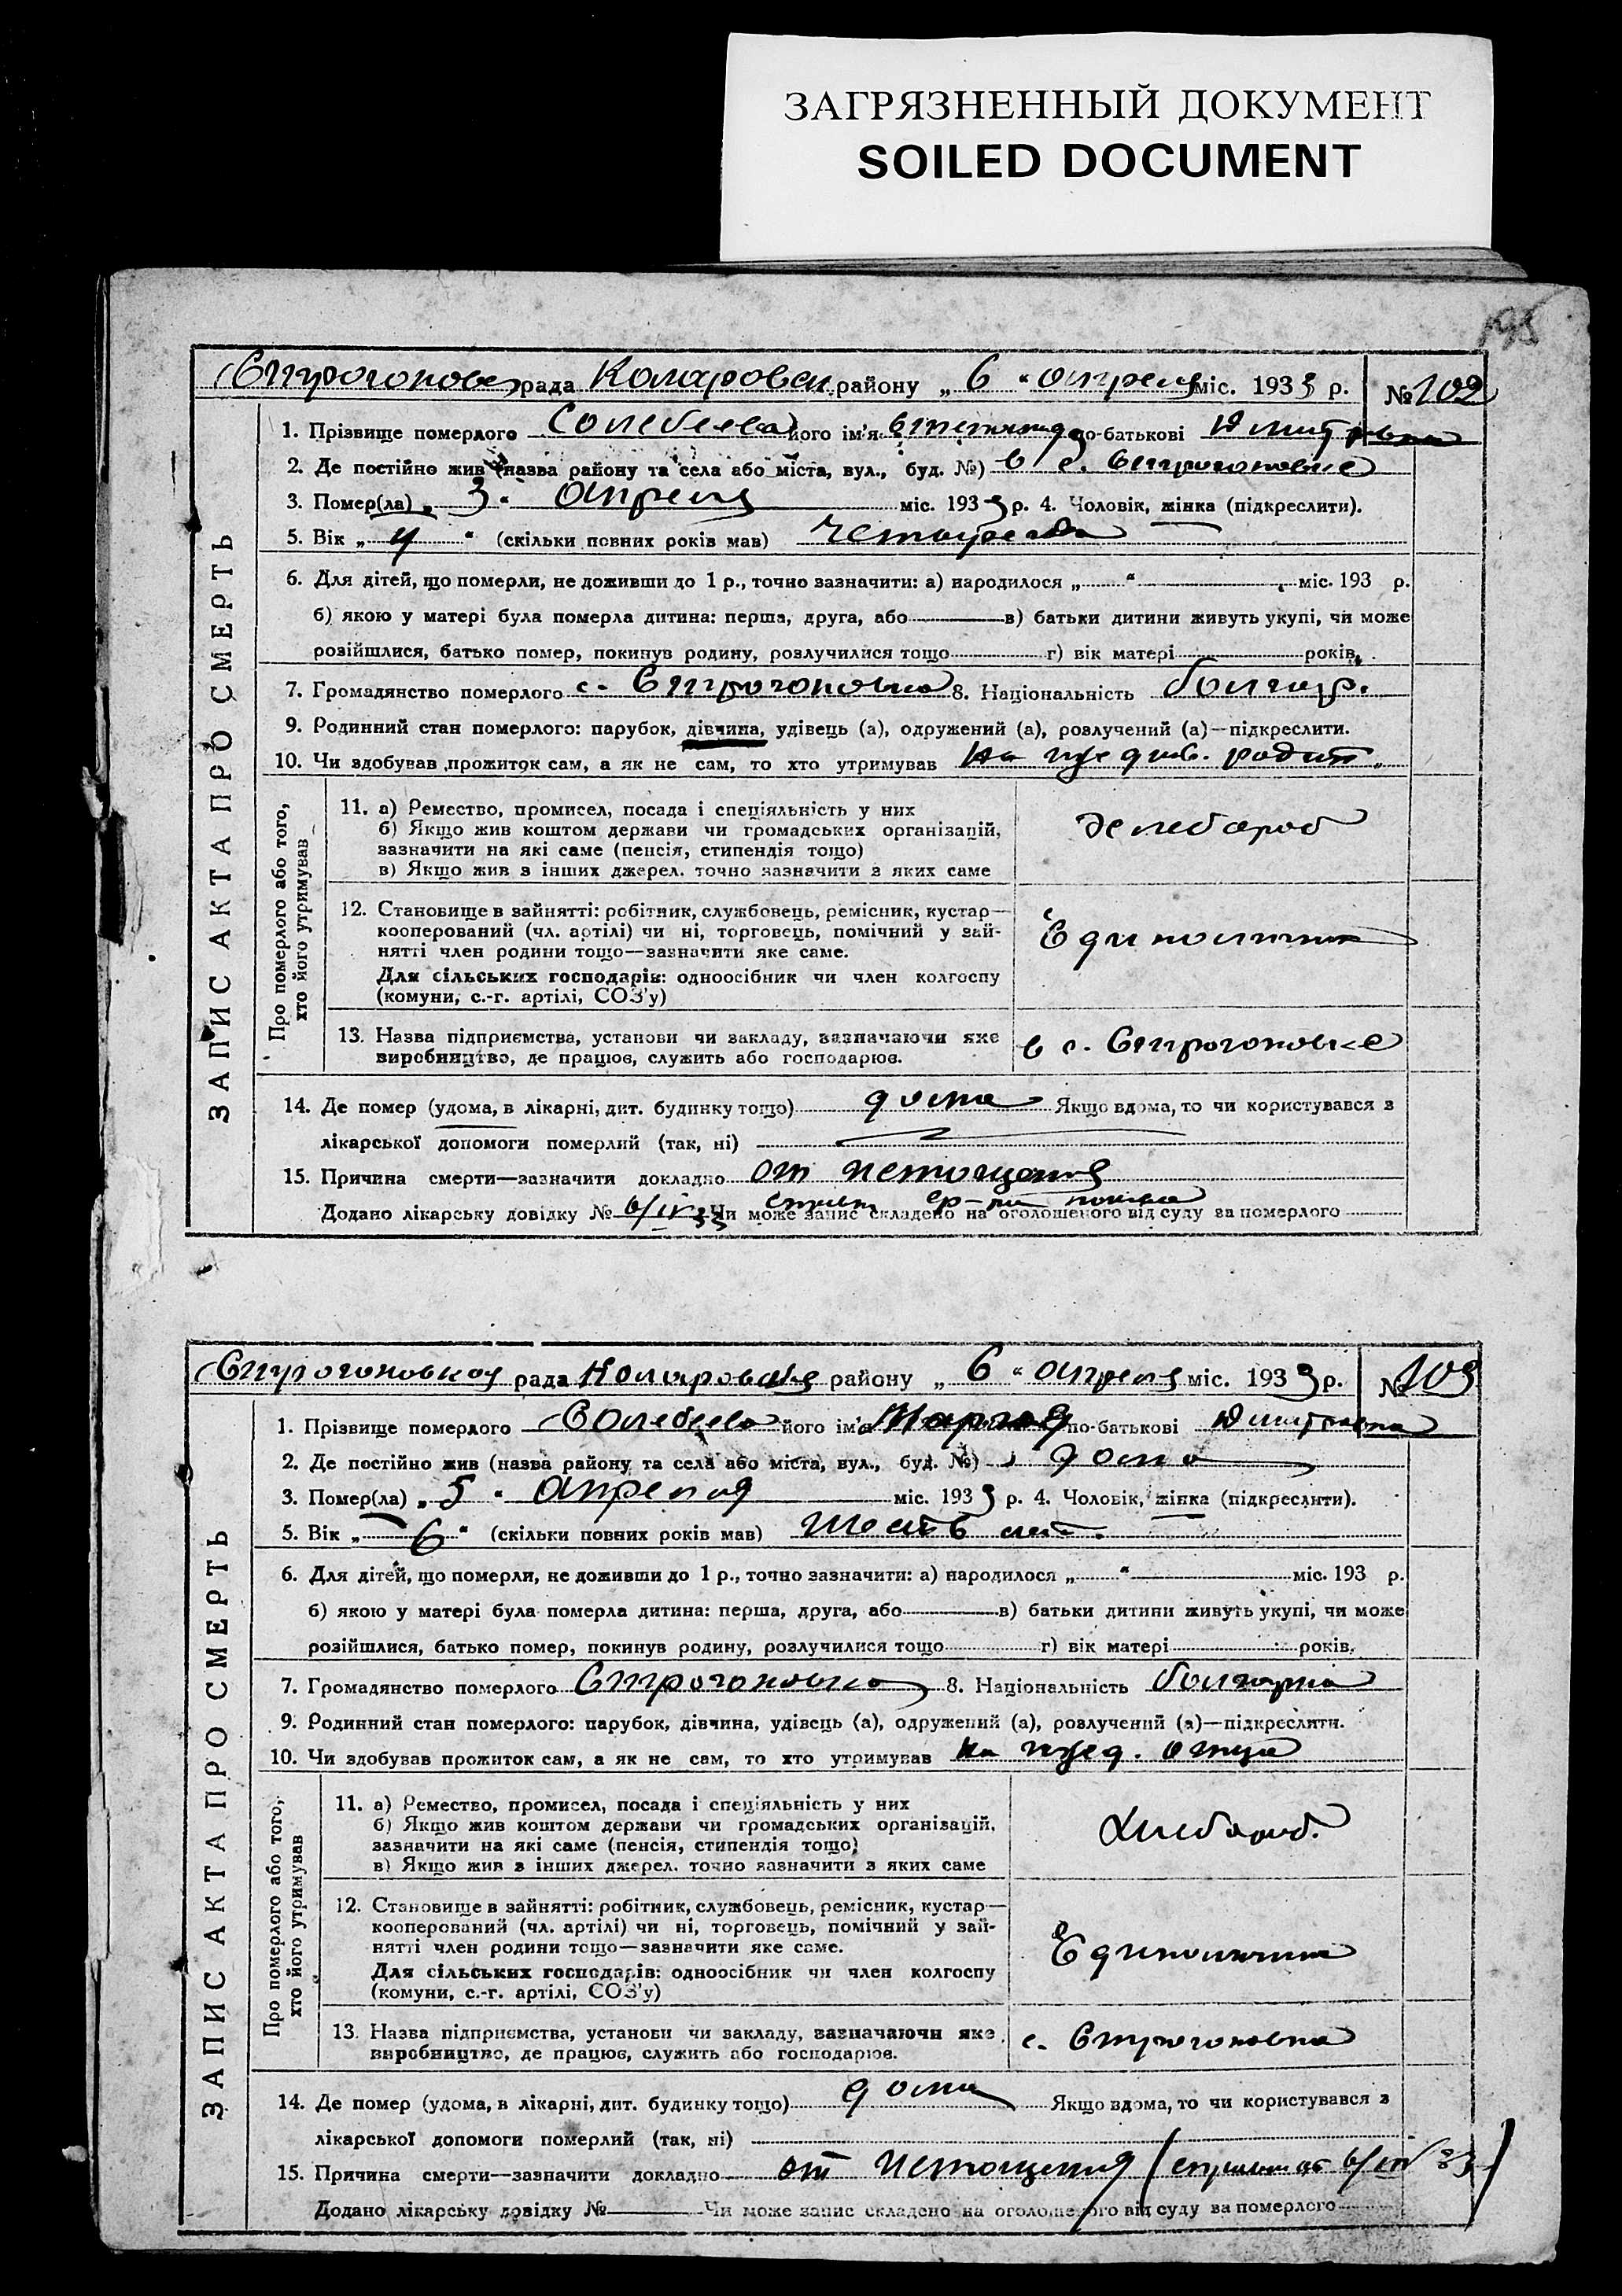 ЗАГРЯЗНЕННЫЙ ДОКУМЕНТ
SOILED DOCUMENT
195
ЗАПИС АКТА ПРО СМЕРТЬ
рада Коларовск. району „ 6 “ апреля міс. 1933 р. № 102
1. Прізвище померлого його ім'я по-батькові Дмитровна
2. Де постійно жив (назва району та села або міста, вул., буд. №) в с. Строгоновке
3. Помер(ла) „ 3 “ апреля міс. 1933 р. 4. Чоловік, жінка (підкреслити).
5. Вік „ 4 “ (скільки повних років мав) четыре года
6. Для дітей, що померли, не доживши до 1 р., точно зазначити: а) народилося „ “ міс. 193 р.
б) якою у матері була померла дитина: перша, друга, або в) батьки дитини живуть укупі, чи може
розійшлися, батько помер, покинув родину, розлучилися тощо г) вік матері років.
7. Громадянство померлого с. Строгоновка 8. Національність болгар.
9. Родинний стан померлого: парубок, дівчина, удівець (а), одружений (а), розлучений (а)—підкреслити.
10. Чи здобував прожиток сам, а як не сам, то хто утримував на иждив. родит.
Про померлого або того, хто його утримував
11. а) Ремество, промисел, посада і спеціяльність у них
б) Якщо жив коштом держави чи громадських організацій,
зазначити на які саме (пенсія, стипендія тощо)
в) Якщо жив з інших джерел. точно зазначити з яких саме
хлебороб
12. Становище в зайнятті: робітник, службовець, ремісник, кустар—
кооперований (чл. артілі) чи ні, торговець, помічний у зай-
нятті член родини тощо—зазначити яке саме.
Для сільських господарів: одноосібник чи член колгоспу
(комуни, с.-г. артілі, СОЗ'у)
Единоличник
13. Назва підприємства, установи чи закладу, зазначаючи яке
виробництво, де працює, служить або господарює.
в с. Строгоновке
14. Де помер (удома, в лікарні, дит. будинку тощо) дома Якщо вдома, то чи користувався з
лікарської допомоги померлий (так, ні)
15. Причина смерти—зазначити докладно от истощения
Додано лікарську довідку № 6/IV 33 Чи може запис складено на оголошеного від суду за померлого
ЗАПИС АКТА ПРО СМЕРТЬ
Строгоновкая рада Коларовская району „ 6 “ апреля міс. 1933 р. № 103
1. Прізвище померлого його ім'я Мария по-батькові Дмитровна
2. Де постійно жив (назва району та села або міста, вул., буд. №) дома
3. Помер(ла) „ 5 “ апреля міс. 1933 р. 4. Чоловік, жінка (підкреслити).
5. Вік „ 6 “ (скільки повних років мав) шесть лет.
6. Для дітей, що померли, не доживши до 1 р., точно зазначити: а) народилося „ “ міс. 193 р.
б) якою у матері була померла дитина: перша, друга, або в) батьки дитини живуть укупі, чи може
розійшлися, батько помер, покинув родину, розлучилися тощо г) вік матері років.
7. Громадянство померлого Строгоновка 8. Національність болгарка
9. Родинний стан померлого: парубок, дівчина, удівець (а), одружений (а), розлучений (а)—підкреслити.
10. Чи здобував прожиток сам, а як не сам, то хто утримував на ижд. отца
Про померлого або того, хто його утримував
11. а) Ремество, промисел, посада і спеціяльність у них
б) Якщо жив коштом держави чи громадських організацій,
зазначити на які саме (пенсія, стипендія тощо)
в) Якщо жив з інших джерел. точно зазначити з яких саме
Хлебороб.
12. Становище в зайнятті: робітник, службовець, ремісник, кустар—
кооперований (чл. артілі) чи ні, торговець, помічний у зай-
нятті член родини тощо—зазначити яке саме.
Для сільських господарів: одноосібник чи член колгоспу
(комуни, с.-г. артілі, СОЗ'у)
Единоличник
13. Назва підприємства, установи чи закладу, зазначаючи яке
виробництво, де працює, служить або господарює.
с. Строгоновка
14. Де помер (удома, в лікарні, дит. будинку тощо) дома Якщо вдома, то чи користувався з
лікарської допомоги померлий (так, ні)
15. Причина смерти—зазначити докладно от истощения 6/IV 33
Додано лікарську довідку № Чи може запис складено на оголошеного від суду за померлого